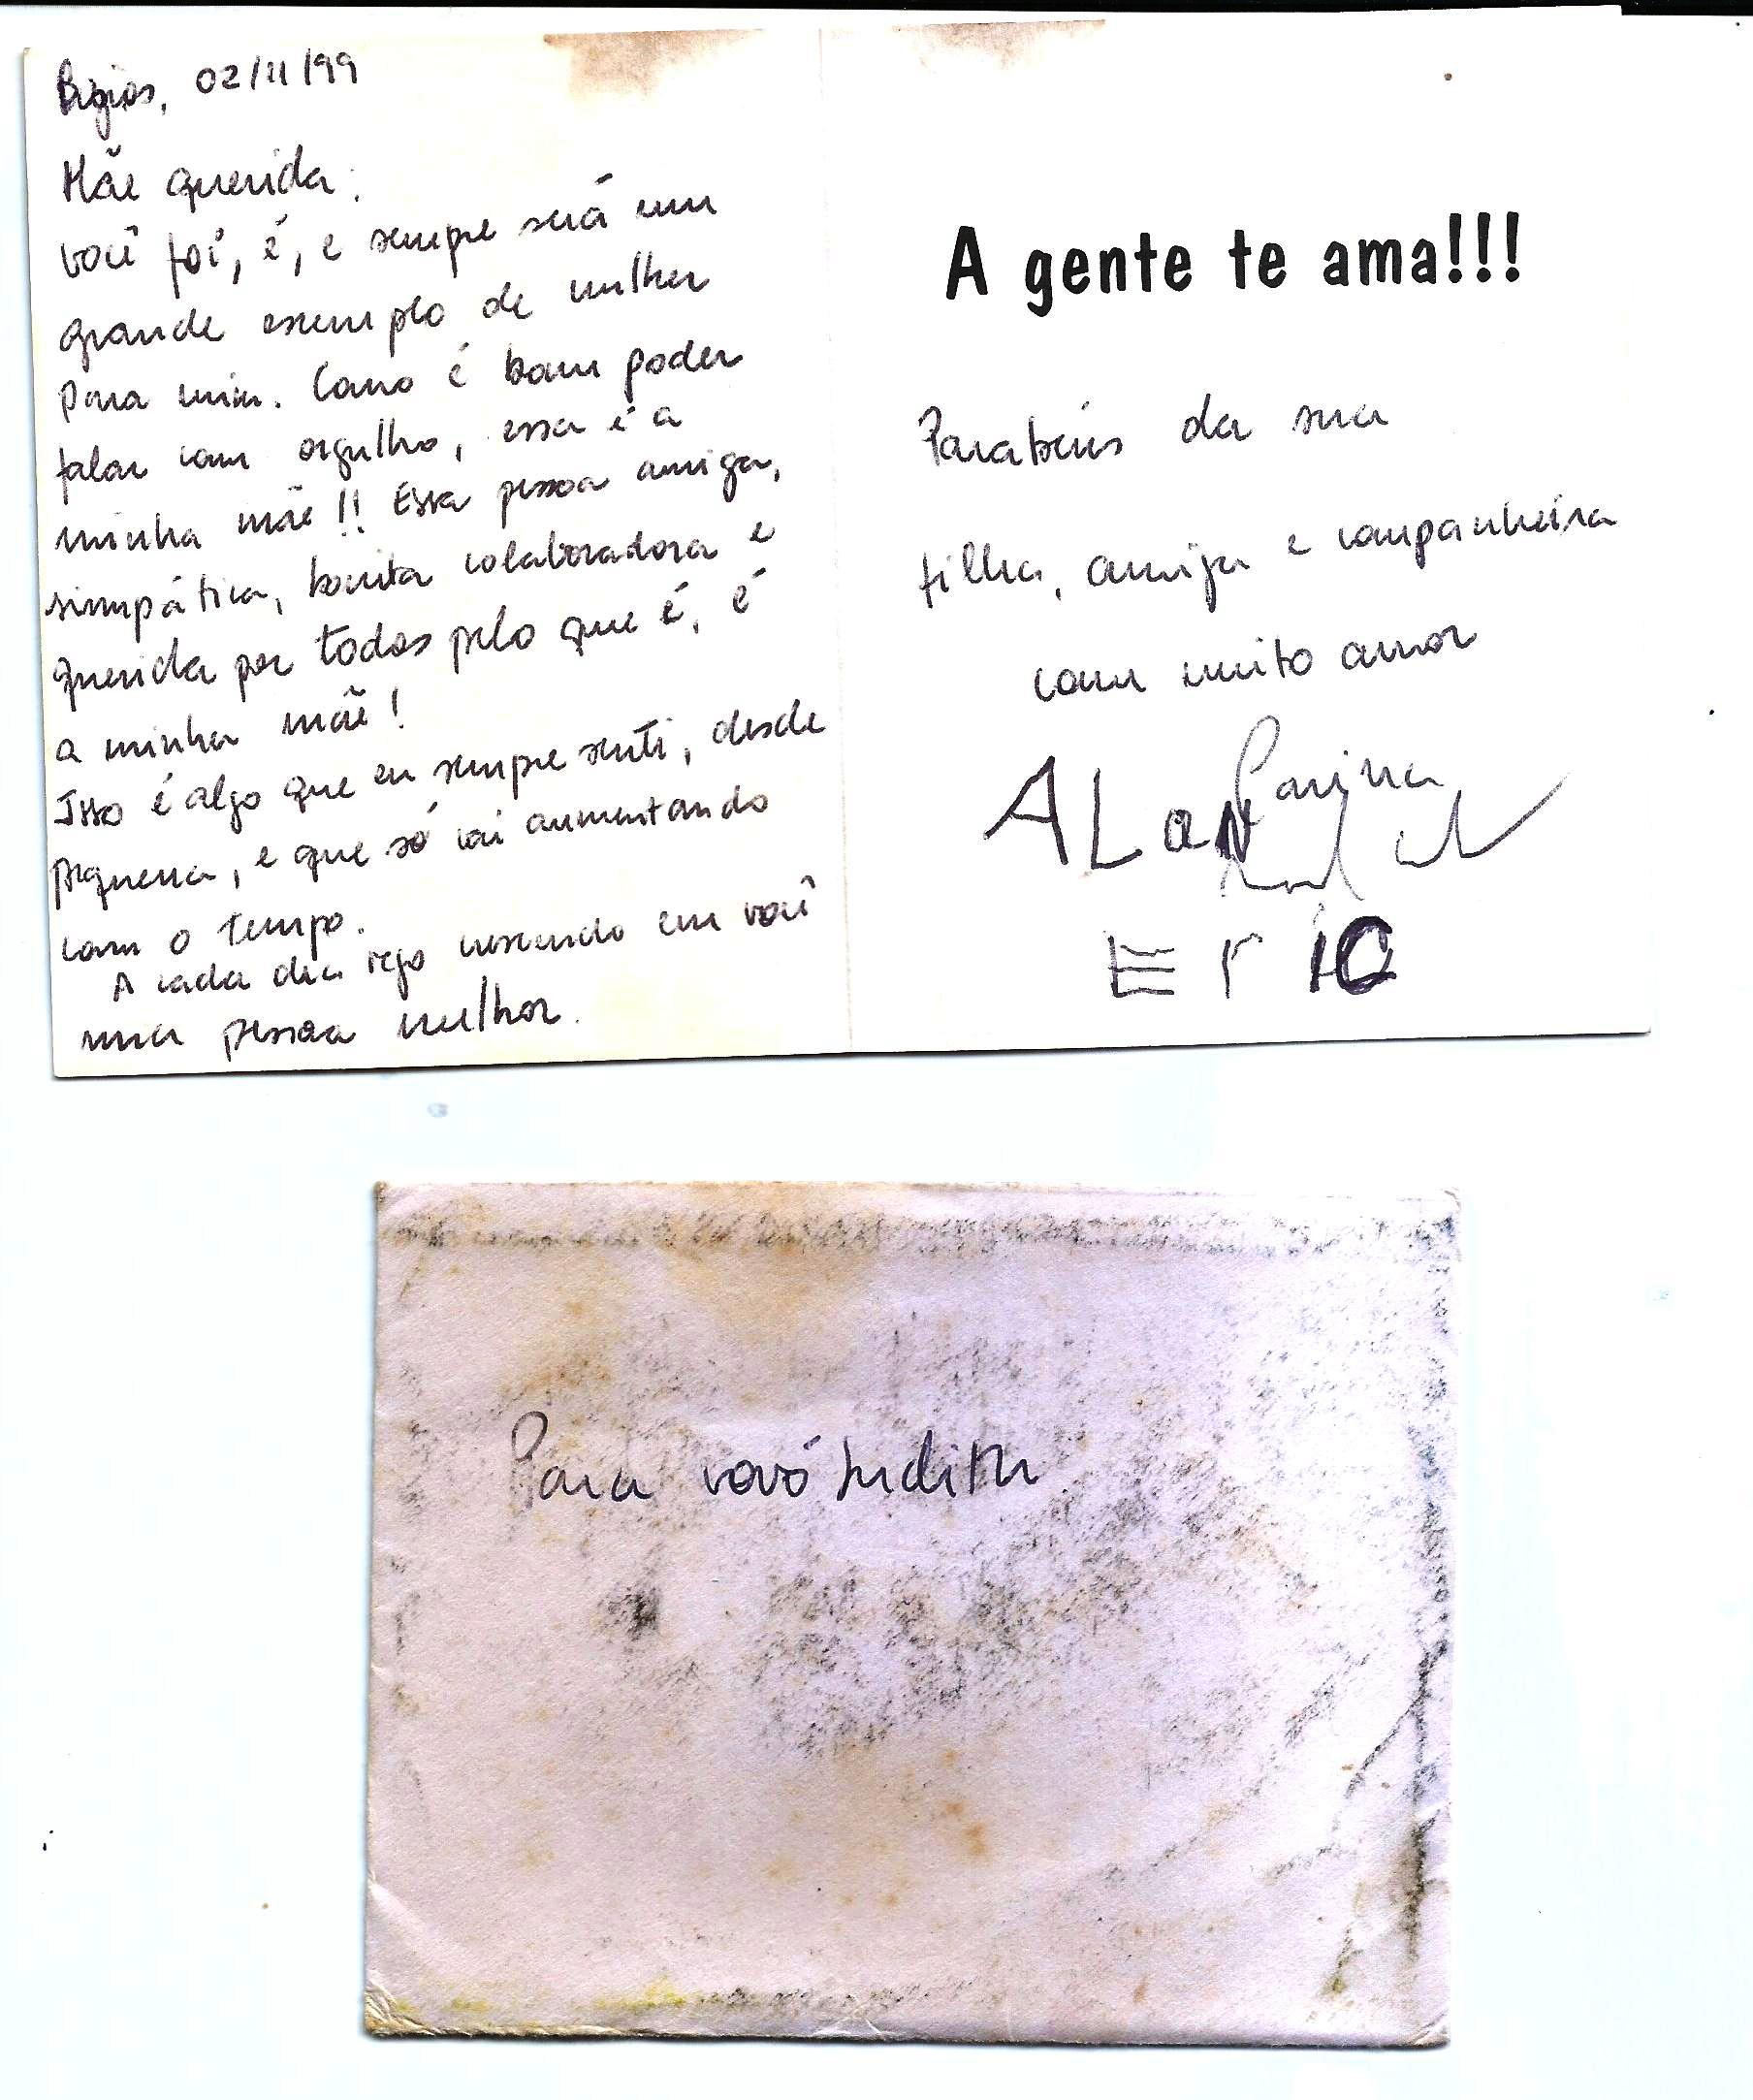 02/11/99
Mãe querida:
você foi, é, e sempre será um
grande exemplo de mulher
para mim. Como é bom poder
falar com orgulho, essa é a
minha mãe!! Essa pessoa amiga,
simpática, bonita colaboradora e
querida por todos pelo que é, é
a minha mãe!
Isso é algo que eu sempre senti, desde
pequena, e que só vai aumentando
com o tempo.
A cada dia vejo crescendo em você
uma pessoa melhor.
A gente te ama!!!
Parabéns da sua
filha, amiga e companheira
com muito amor
Carina
ALaN
Eric
Para vovó Judith